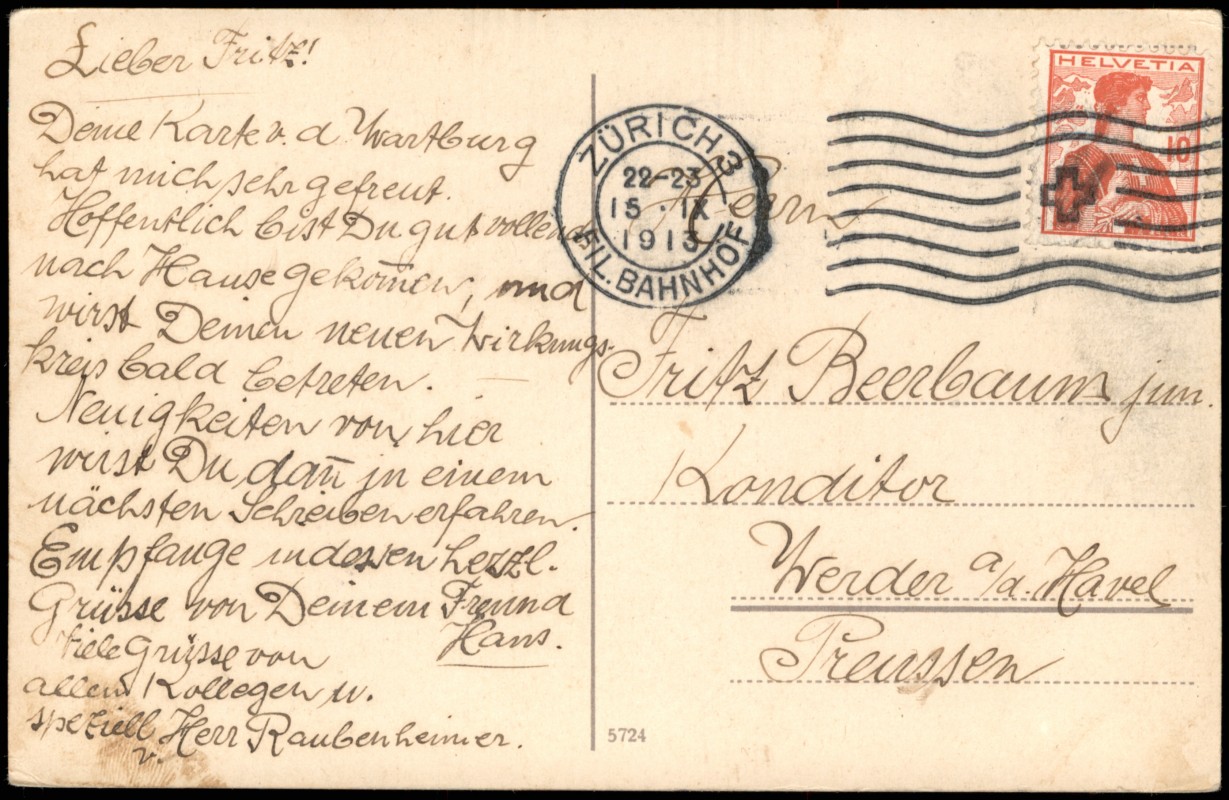 Lieber Fritz!
Deine Karte v. d. Wartburg
hat mich sehr gefreut.
Hoffentlich bist Du gut vollends
nach Hause gekom̄en, und
wirst Deinen neuen Wirkungs-
kreis bald betreten. —
Neuigkeiten von hier
wirst Du dan̄ in einem
nächsten Schreiben erfahren.
Empfange indessen herzl.
Grüsse von Deinem Freund
Hans.
Viele Grüsse von
allen Kollegen u.
speziell Herr Raubenheimer.
v.
ZÜRICH 3
22-23
15 · IX
1913
FIL. BAHNHOF
HELVETIA
10
Herrn
Fritz Beerbaum jun.
Konditor
Werder a/d. Havel
Preussen
5724